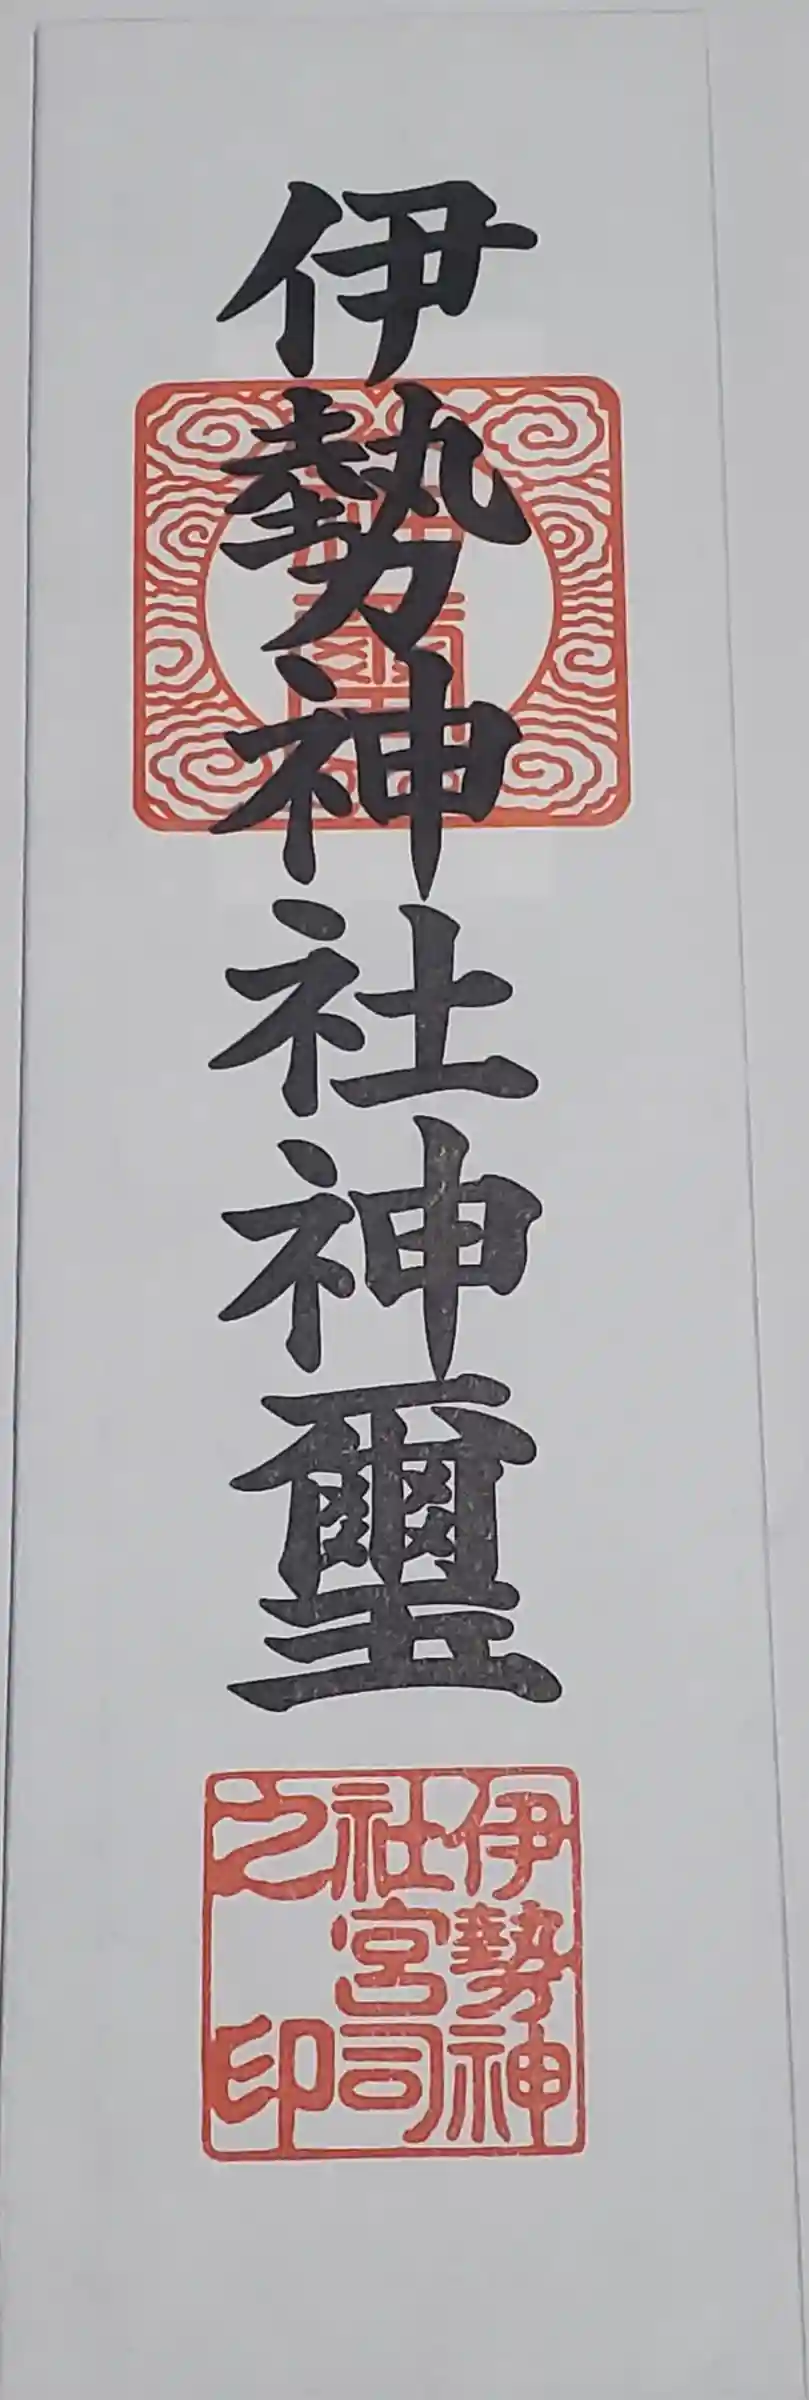 伊勢神社神璽
神璽
伊勢神
社宮司
之印